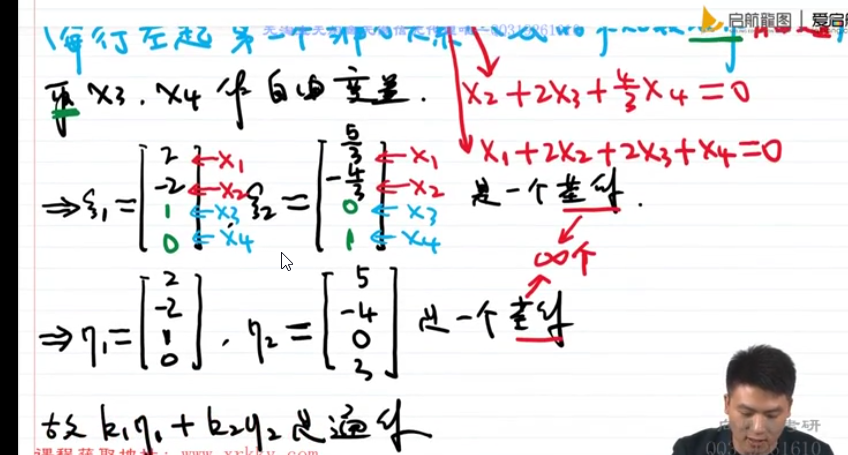 启航龍图 | 爱启
(每行左起 第一个非0元素
取 x3, x4 作自由变量.
x2+2x3+4/3x4=0
x1+2x2+2x3+x4=0
⇒ξ1=[2 -2 1 0] ←x1 ←x2 ←x3 ←x4 , ξ2=[5/3 -4/3 0 1] ←x1 ←x2 ←x3 ←x4 是一个基础解.
∞个
⇒η1=[2 -2 1 0], η2=[5 -4 0 3] 是一个基础解
故 k1η1+k2η2 是通解
课程获取地址: www.xrkky.com